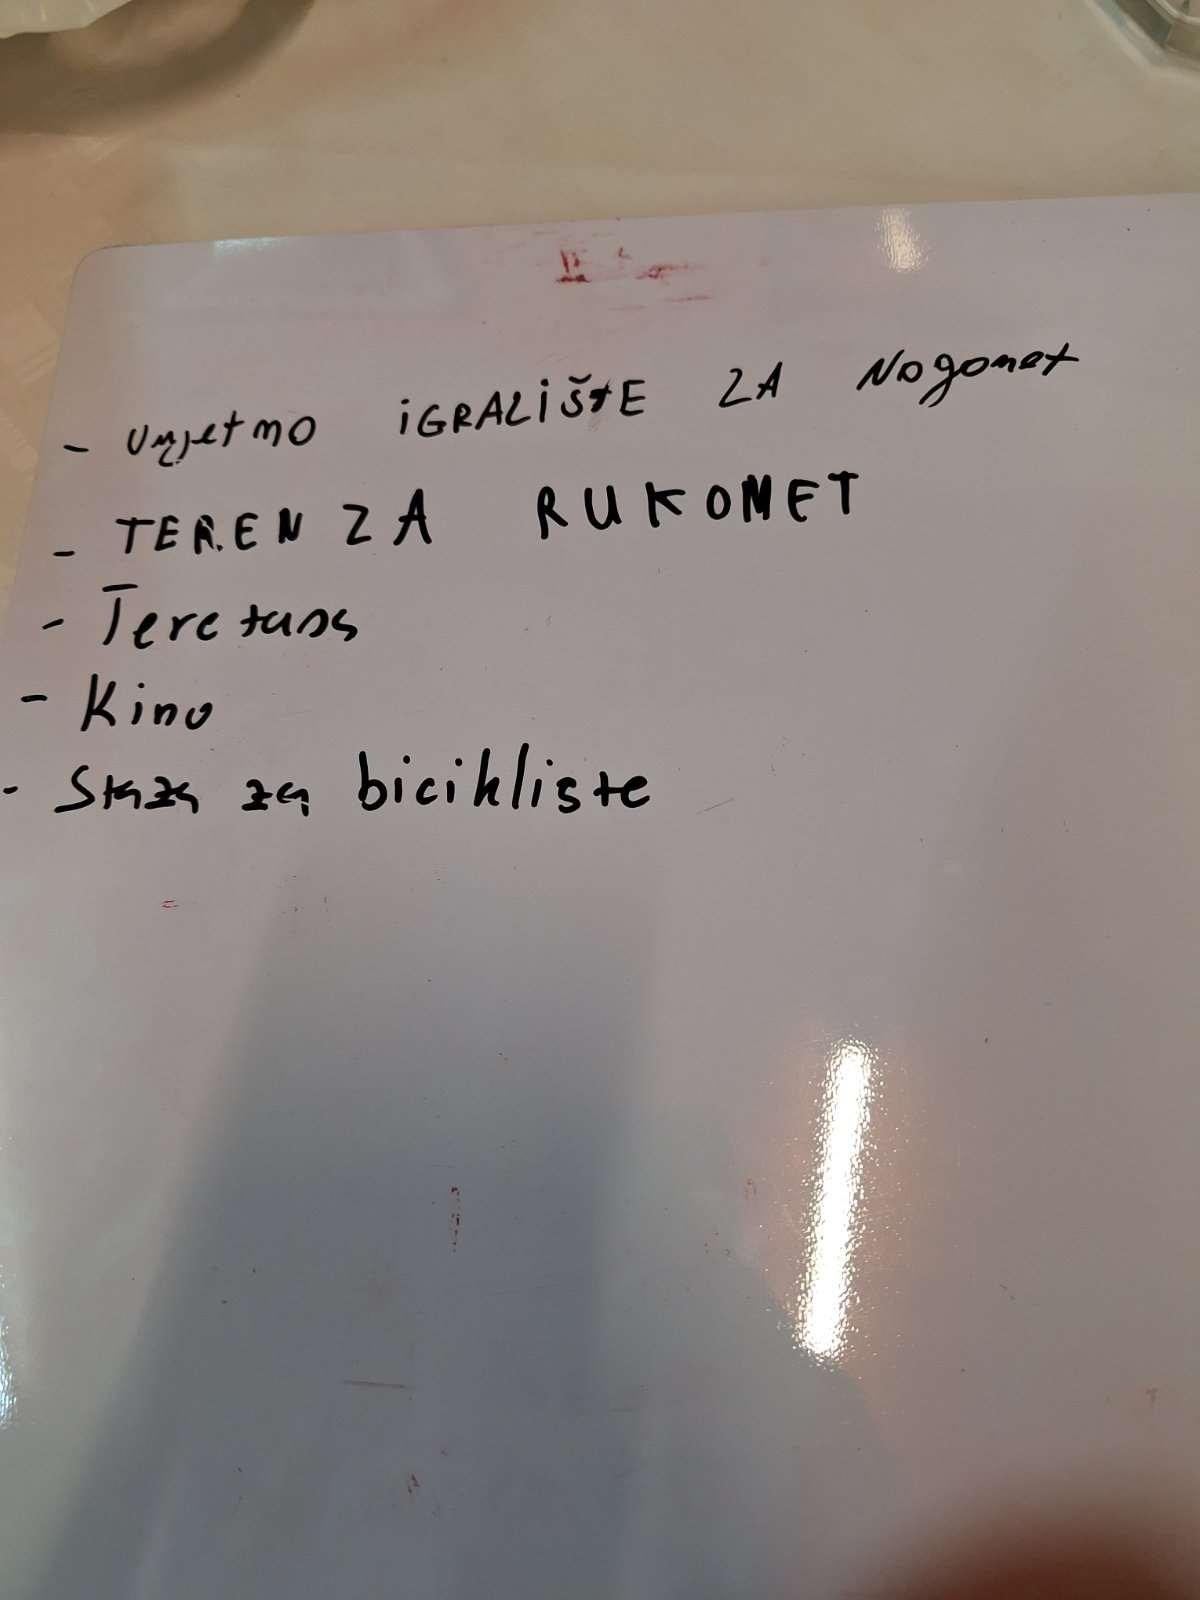 - umjetno iGRALiŠtE ZA Nogomet
- TEREN ZA RUKOMET
- Teretana
- Kino
- Staza za bicikliste